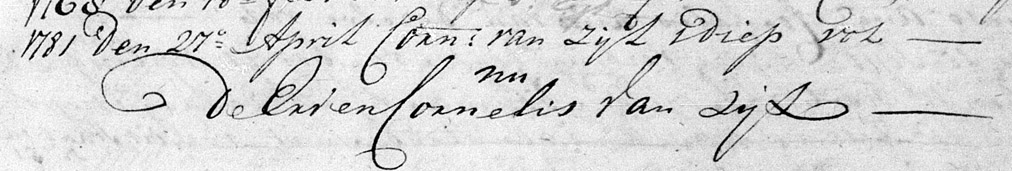 1768 den 10
1781 Den 27e April Corn: van Zijl 2 diep vol —
nu
De Erven Cornelis van Zijl —